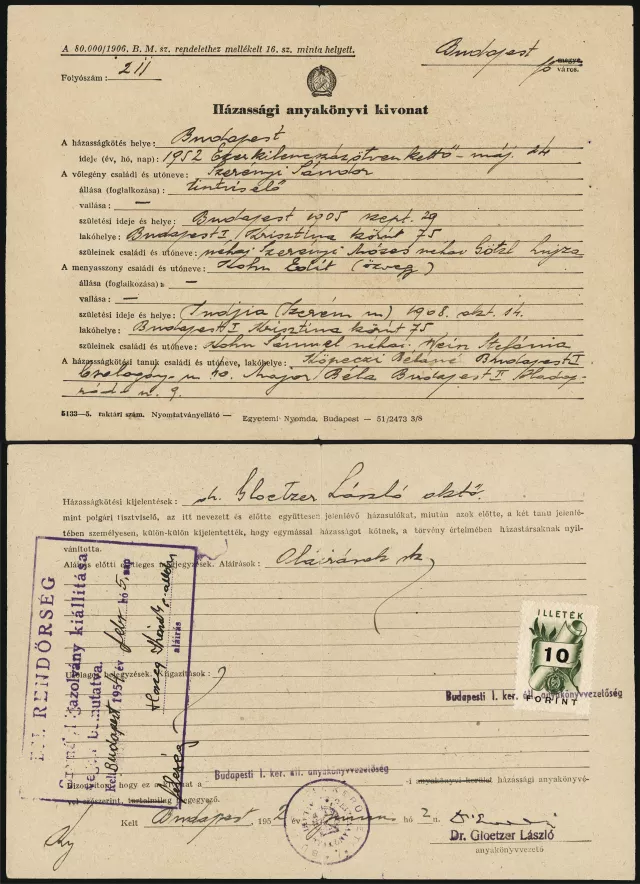 A 80.000/1906. B. M. sz. rendelethez mellékelt 16. sz. minta helyett.
Budapest megye
város.
Folyószám: 211
Házassági anyakönyvi kivonat
A házasságkötés helye: Budapest
ideje (év, hó, nap): 1952 Ezerkilencszázötvenkettő - máj. 24
A vőlegény családi és utóneve: Szerényi Sándor
állása (foglalkozása): tisztviselő
vallása: —
születési ideje és helye: Budapest 1905 szept. 29
lakóhelye: Budapest I Krisztina körút 75
szüleinek családi és utóneve: néhai Szerényi Mózes néhai Götzl Lujza
A menyasszony családi és utóneve: Kohn Edit (özvegy)
állása (foglalkozása): —
vallása: —
születési ideje és helye: Indjia (Szerém m) 1908. okt. 14.
lakóhelye: Budapest I Krisztina körút 75
szüleinek családi és utóneve: Kohn Sámuel néhai Stefánia
A házasságkötési tanuk családi és utóneve, lakóhelye: Köpeczi Béláné Budapest I
u. 10. Major Béla Budapest II
u. 9.
5133—5. raktári szám. Nyomtatványellátó — Egyetemi Nyomda, Budapest — 51/2473 3/8
Házasságkötési kijelentések: dr. Gloetzer László
mint polgári tisztviselő, az itt nevezett és előtte együttesen jelenlévő házasulókat, miután azok előtte, a két tanu jelenlé-
tében személyesen, külön-külön kijelentették, hogy egymással házasságot kötnek, a törvény értelmében házastársaknak nyil-
vánította.
Aláírás előtti esetleges megjegyzések. Aláírások: Aláírások
RENDŐRSÉG
igazolvány kiállítása
bemutatva.
Kelt Budapest 1954 év febr hó 5. nap
aláírás
ILLETÉK
10
FORINT
Budapesti I. ker. áll. anyakönyvvezetőség
Utólagos bejegyzések. Kiigazítások:
Budapesti I. ker. áll. anyakönyvvezetőség
Bizonyítom, hogy ez a kivonat a -i anyakönyvi kerület házassági anyakönyvé-
vel szószerint, tartalmilag megegyező.
Kelt Budapest, 1952 év hó 2 n.
Dr. Gloetzer László
anyakönyvvezető